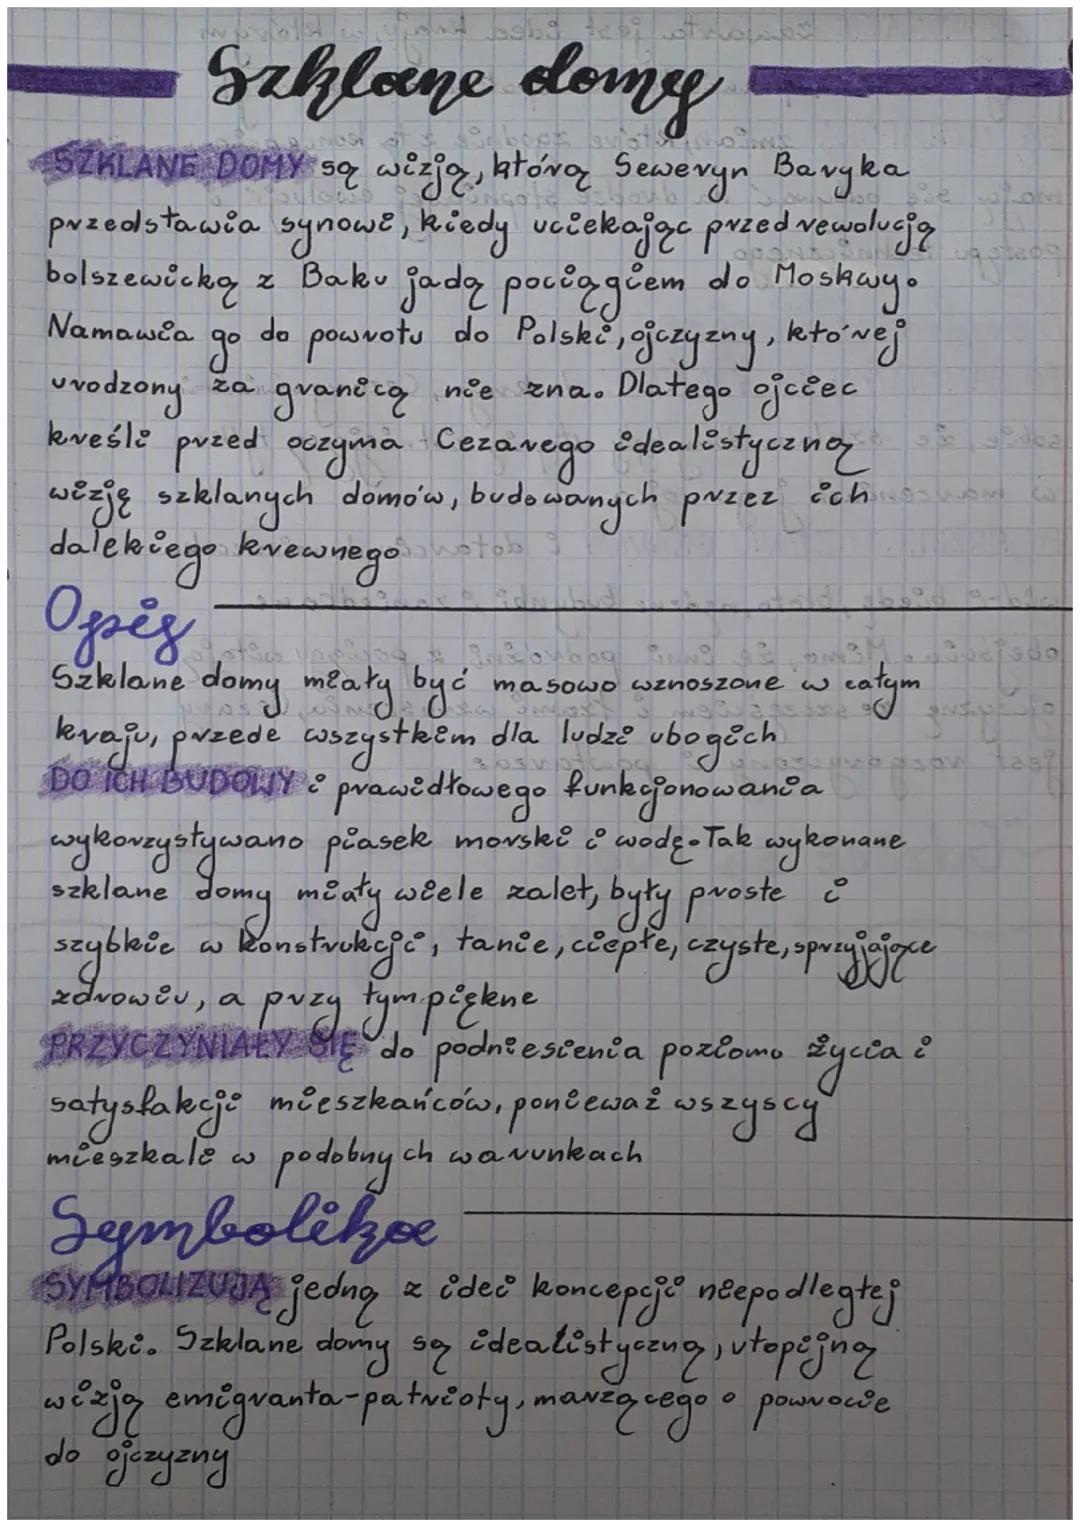 Szklane domy
SZKLANE DOMY są wizją, którą Seweryn Baryka
przedstawia synowi, kiedy uciekając przed rewolucją
bolszewicką z Baku jadą pociągiem do Moskwy.
Namawia go do powrotu do Polski, ojczyzny, której
urodzony za granicą nie zna. Dlatego ojciec
kreśli przed oczyma Cezarego idealistyczną
wizję szklanych domów, budowanych przez ich
dalekiego krewnego
Opis
Szklane domy miały być masowo wznoszone w całym
kraju, przede wszystkim dla ludzi ubogich
DO ICH BUDOWY i prawidłowego funkcjonowania
wykorzystywano piasek morski i wodę. Tak wykonane
szklane domy miały wiele zalet, były proste i
szybkie w konstrukcji, tanie, ciepłe, czyste, sprzyjające
zdrowiu, a przy tym piękne
PRZYCZYNIAŁY SIĘ do podniesienia poziomu życia i
satysfakcji mieszkańców, ponieważ wszyscy
mieszkali w podobnych warunkach
Symbolika
SYMBOLIZUJĄ jedną z idei koncepcji niepodległej
Polski. Szklane domy są idealistyczną, utopijną
wizją emigranta-patrioty, marzącego o powrocie
do ojczyzny